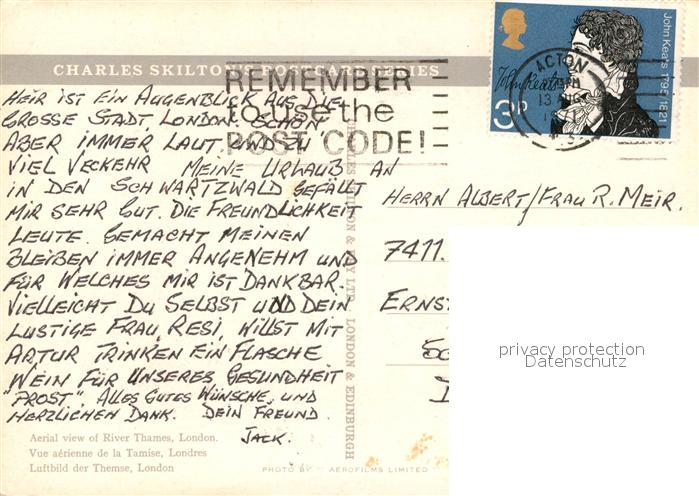 John Keats 1795/1821
John Keats
3p
ACTON
CHARLES SKILTON'S POSTCARD SERIES
REMEMBER
to use the
POST CODE!
HEIR IST EIN AUGENBLICK AUS DIE
GROSSE STADT, LONDON. SCHÖN
ABER IMMER LAUT, UND ZU
VIEL VECKEHR MEINE URLAUB AN
IN DEN SCHWARTZWALD GEFÄLLT
MIR SEHR GUT. DIE FREUNDLICHKEIT
LEUTE. GEMACHT MEINEN
BLEIBEN IMMER ANGENEHM UND
FÜR WELCHES MIR IST DANKBAR.
VIELLEICHT DU SELBST UND DEIN
LUSTIGE FRAU, RESI, WILLST MIT
ARTUR TRINKEN EIN FLASCHE
WEIN FÜR UNSERES GESUNDHEIT
"PROST". ALLES GUTES WÜNSCHE, UND
HERZLICHEN DANK. DEIN FREUND.
JACK.
HERRN ALBERT/FRAU R. MEIR.
7411.
ERNS
privacy protection
Datenschutz
LONDON & EDINBURGH
Aerial view of River Thames, London.
Vue aérienne de la Tamise, Londres
Luftbild der Themse, London
PHOTO BY AEROFILMS LIMITED